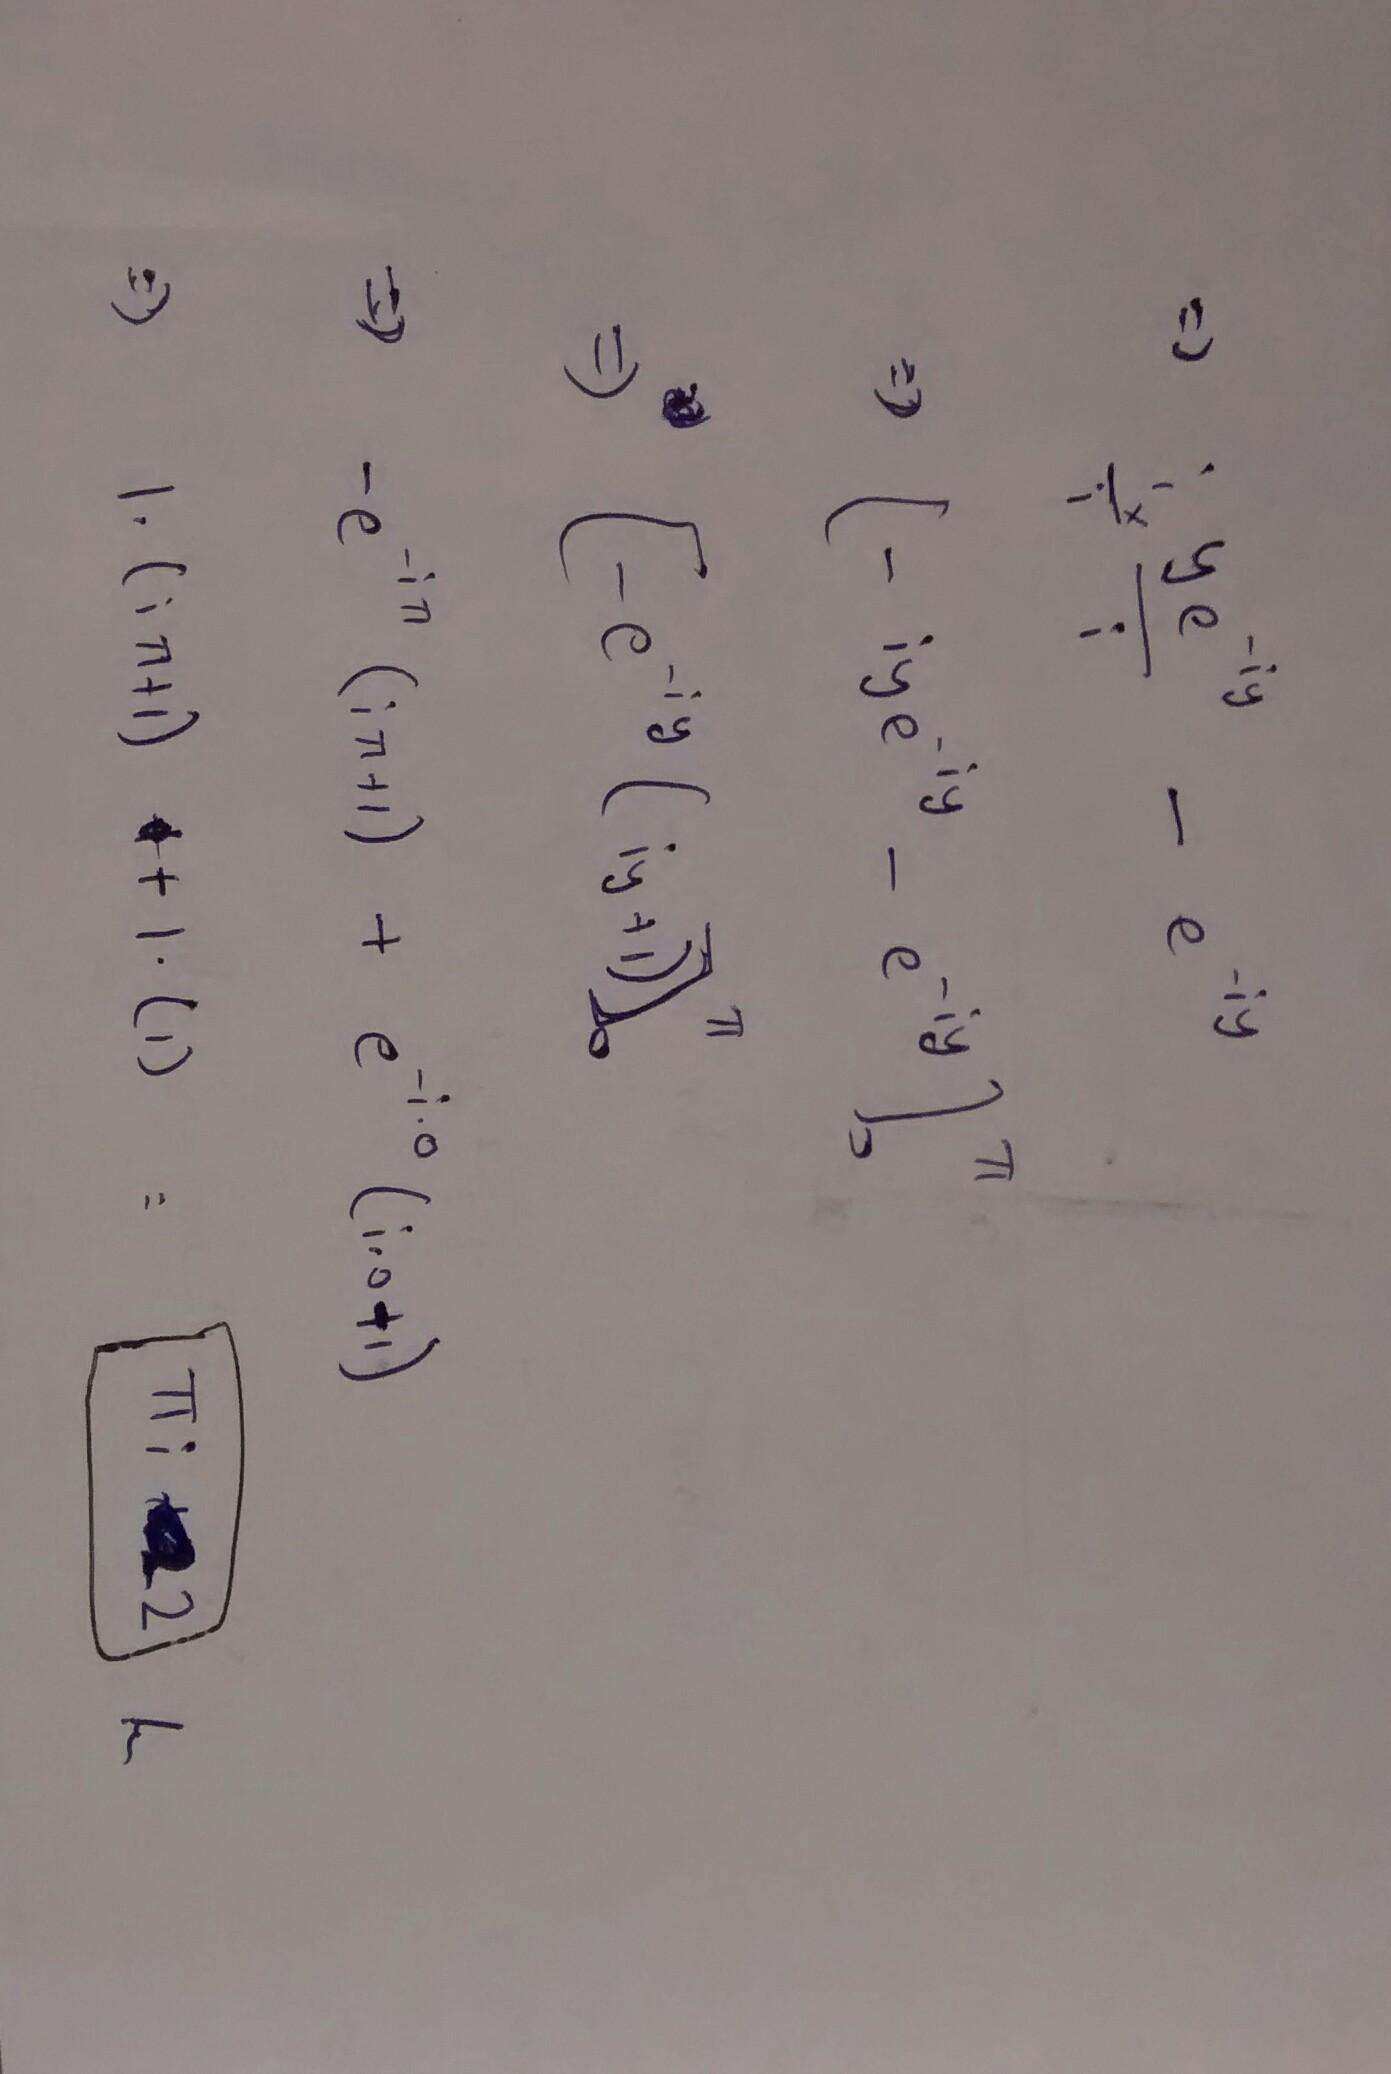 ⇒ i/i × ye^{-iy}/i - e^{-iy}
⇒ [- iye^{-iy} - e^{-iy}]_0^π
⇒ [-e^{-iy} (iy+1)]_0^π
⇒ -e^{-iπ} (iπ+1) + e^{-i·0} (i·0+1)
⇒ 1·(iπ+1) + 1·(1) = πi 2